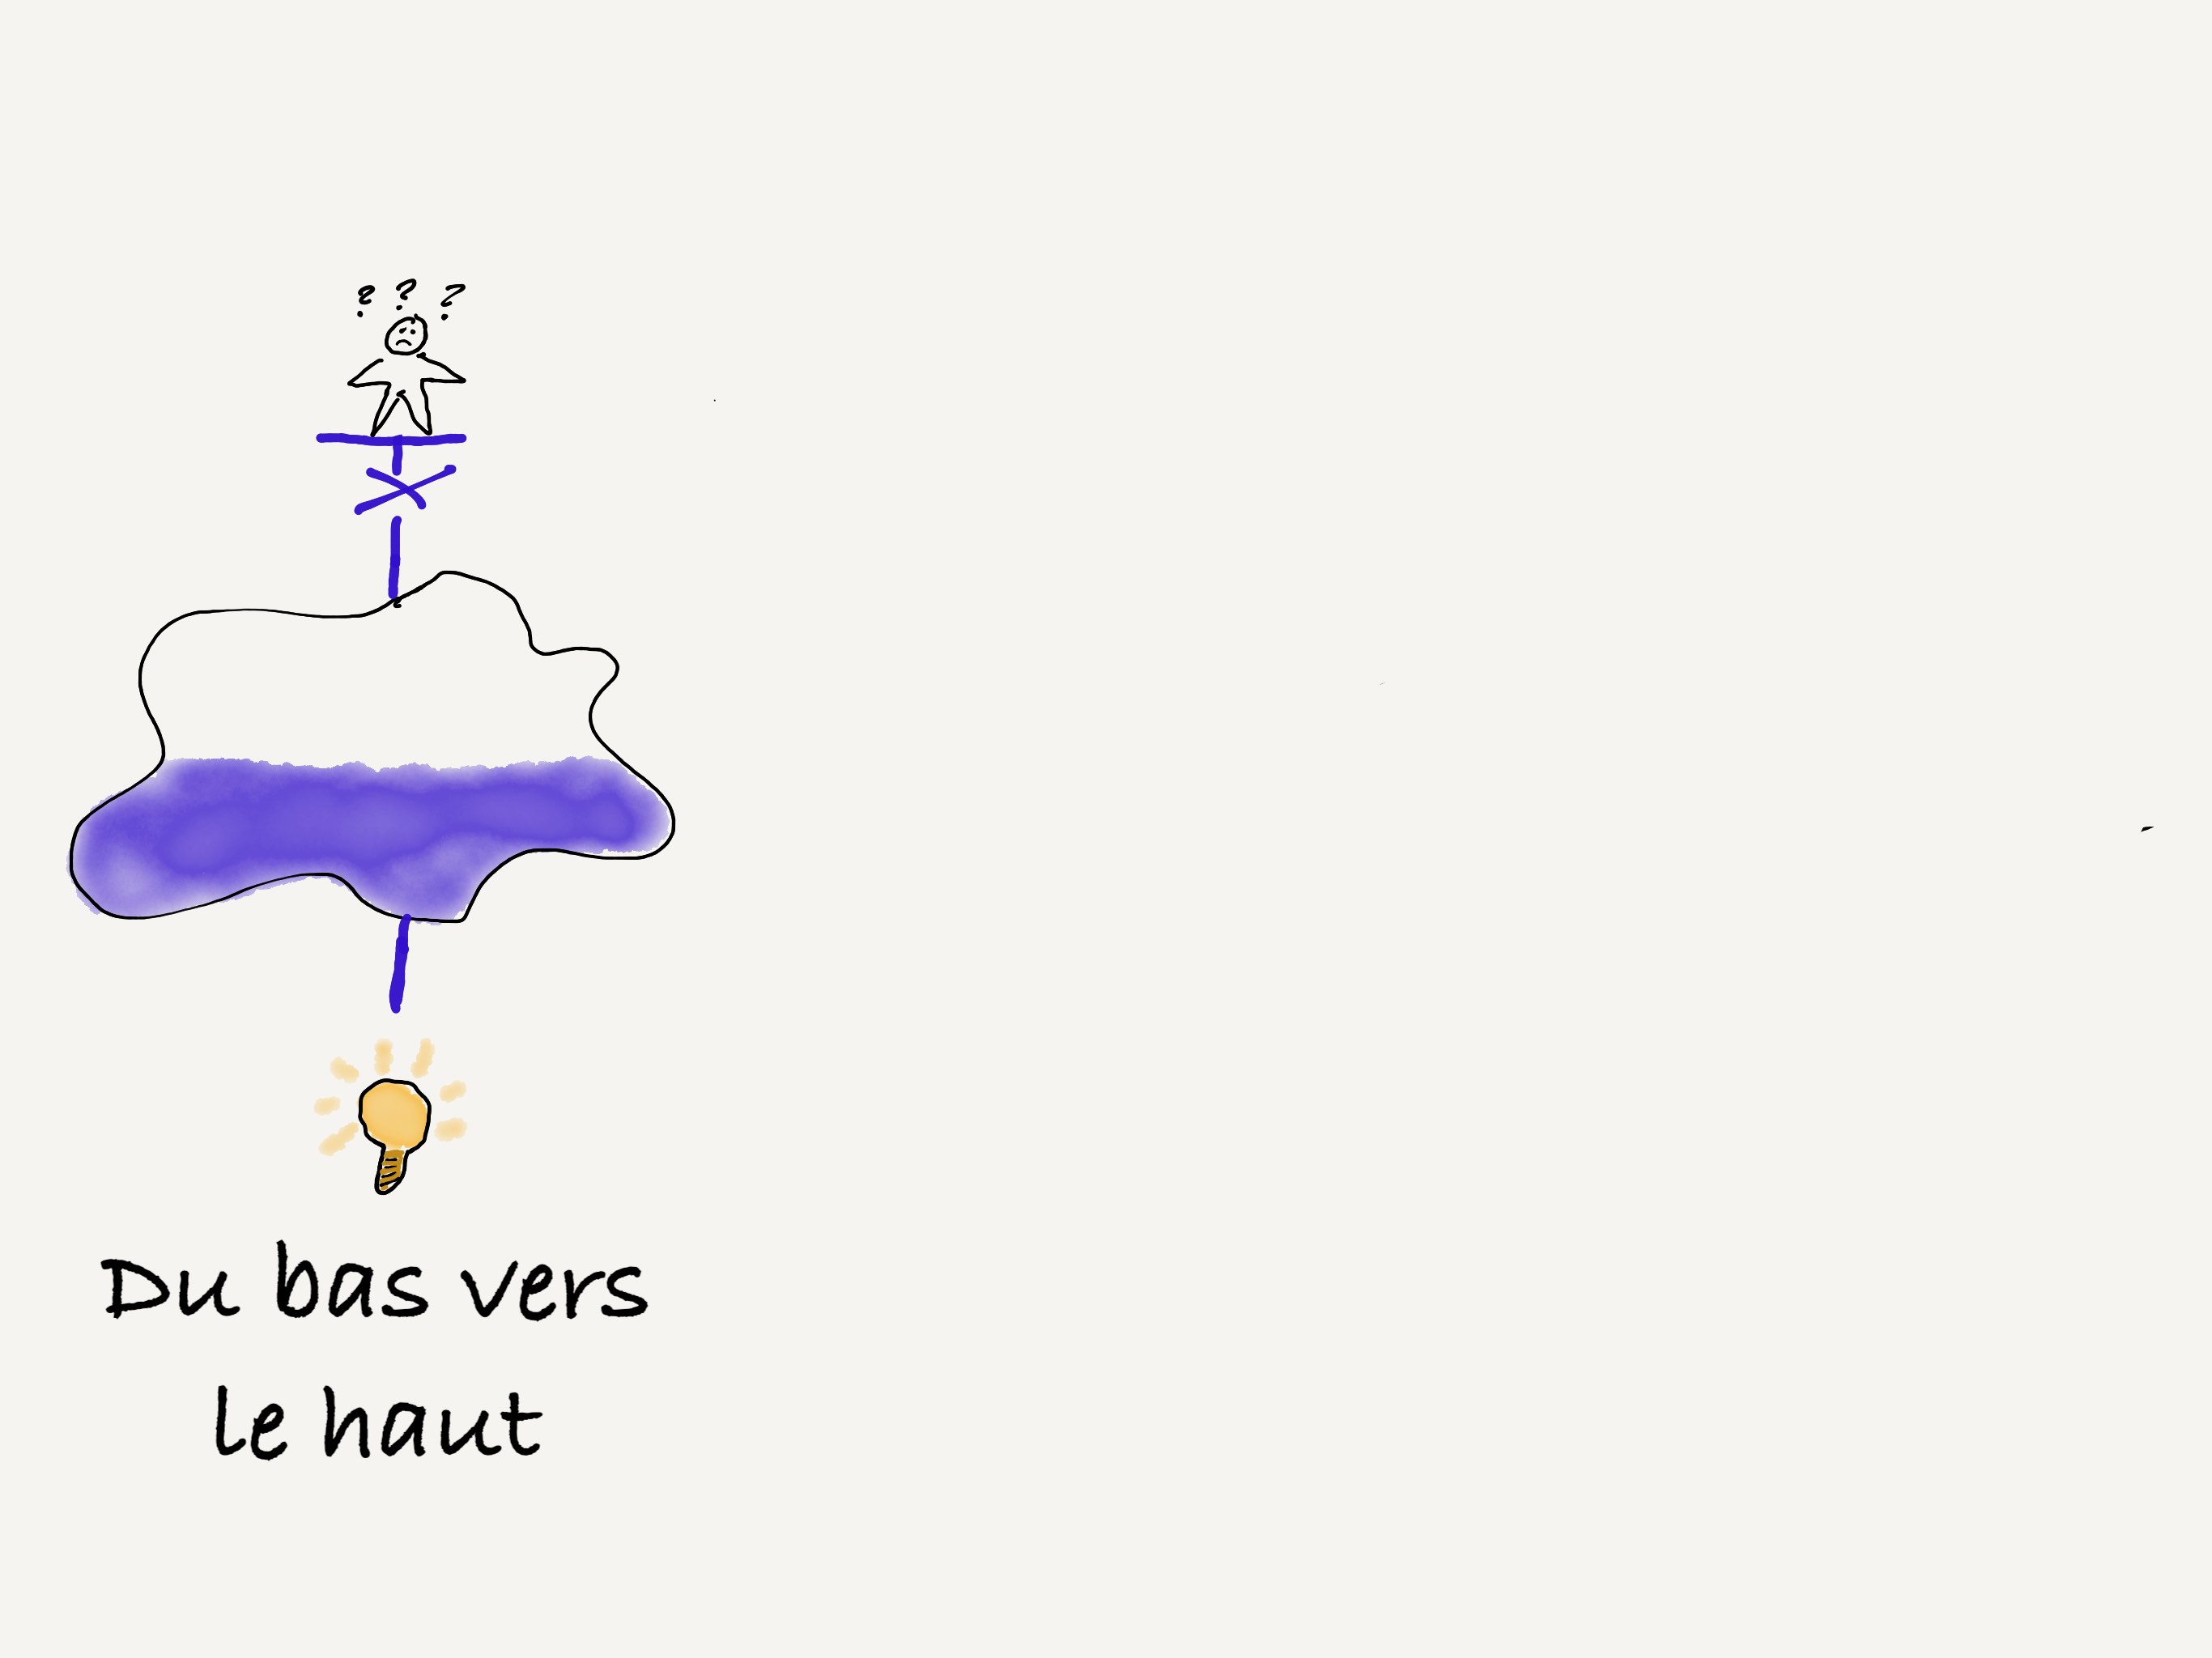 ? ? ?
Du bas vers
le haut